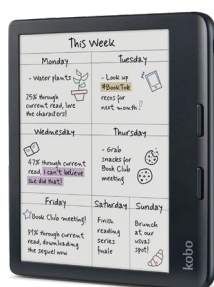 This Week
Monday
- Water plants
25% through
current read, love
the characters!
Tuesday
- Look up
#BookTok
recs for
next month!
Wednesday
47% through current
read, I can't believe
she did that!
Thursday
- Grab
snacks for
Book Club
meeting
Friday
Book Club meeting!
89% through current
read, downloading
the sequel now
Saturday
Finish
reading
series
finale
Sunday
Brunch
at our
usual
spot!
kobo